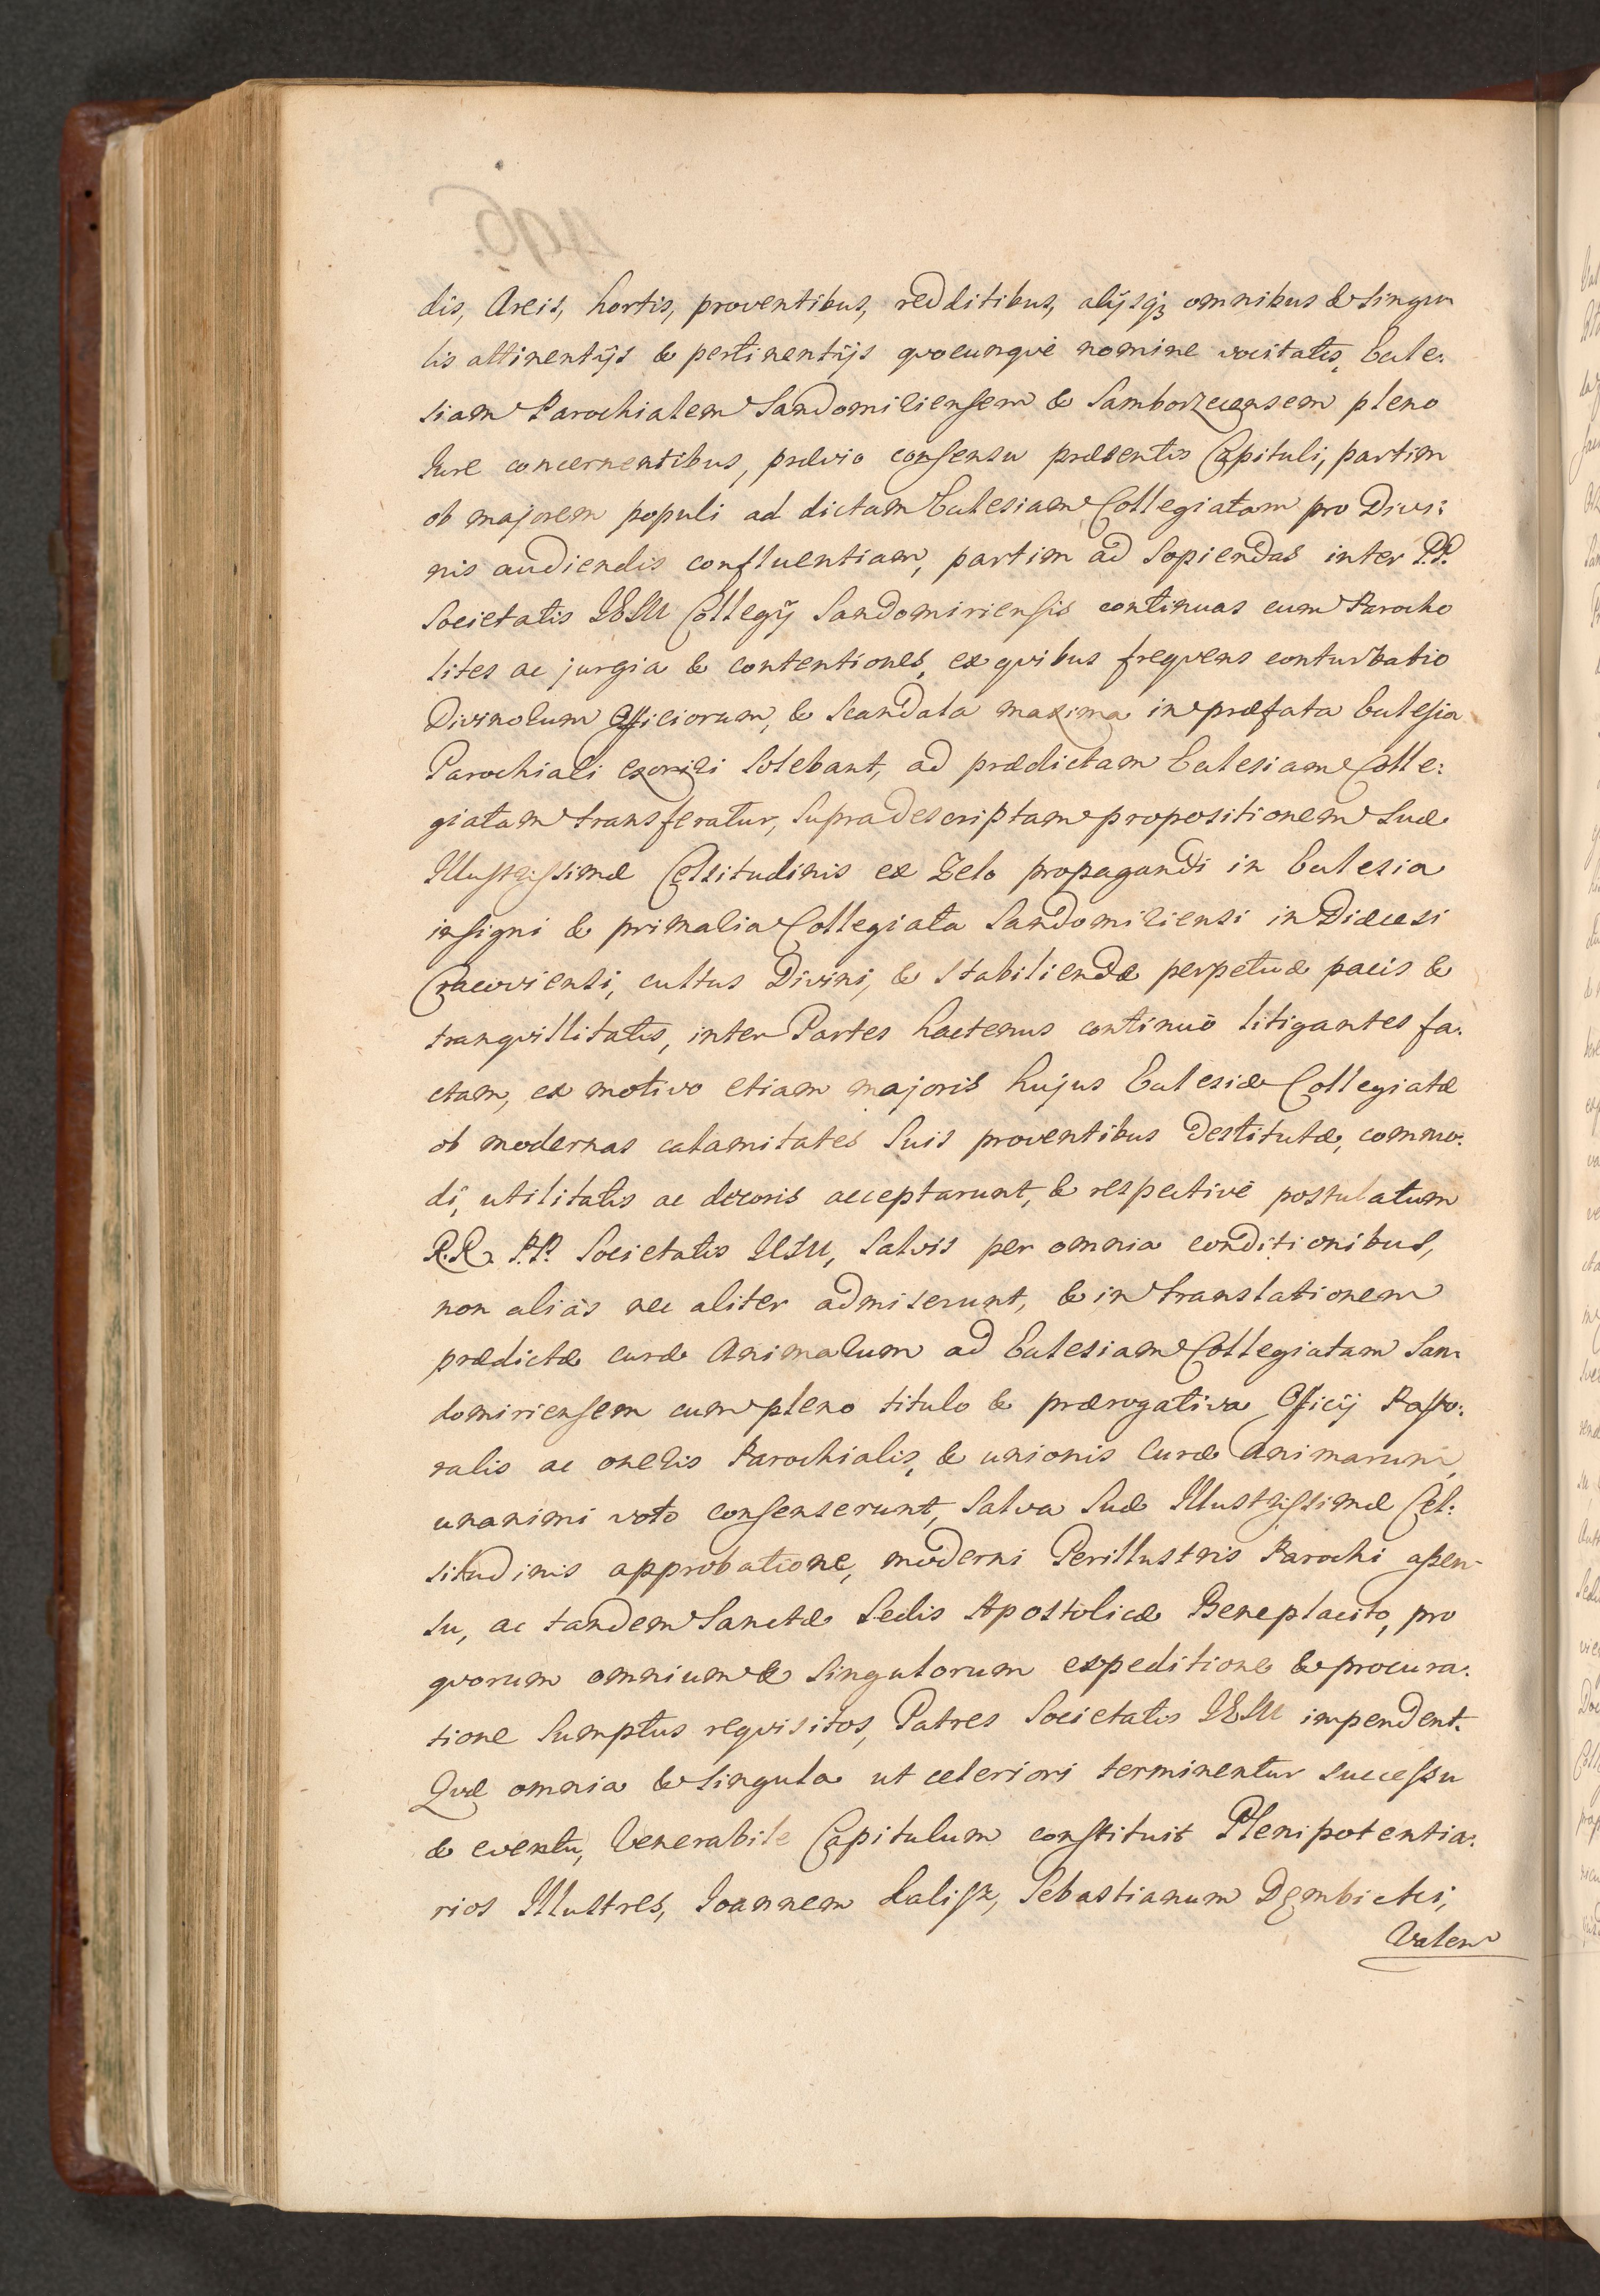 dis, Areis, hortis, proventibus, redditibus, alijsq; omnibus & singu
lis attinentijs & pertinentijs quocunquè nomine vocitatis, Eccle:
siam Parochialem Sandomiriensem & Samborzecensem pleno
Jure concernentibus, prævio consensu præsentis Capituli, partim
ob majorem populi ad dictam Ecclesiam Collegiatam pro Divi:
nis audiendis confluentiam, partim ad sopiendas inter P.P.
Societatis IESU Collegij Sandomiriensis continuas cum Parocho
lites ac jurgia & contentiones, ex quibus frequens conturbatio
Divinorum Officiorum, & scandala maxima in præfata Ecclesia
Parochiali exoriri solebant, ad prædictam Ecclesiam Colle:
giatam transferatur, supradescriptam propositionem Suæ
Illustrissimæ Celsitudinis ex Zelo propagandi in Ecclesia
insigni & primaria Collegiata Sandomiriensi in Diæcesi
Cracoviensi, cultus Divini, & stabiliendæ perpetuæ pacis &
tranquillitatis, inter Partes hactenus continuò litigantes fa:
ctam, ex motivo etiam majoris hujus Ecclesiæ Collegiatæ
ob modernas calamitates suis proventibus destitutæ, commo:
di, utilitatis ac decoris acceptarunt, & respectivè postulatum
R.R. P.P. Societatis IESU, salvis per omnia conditionibus,
non aliàs nec aliter admiserunt, & in translationem
prædictæ curæ Animarum ad Ecclesiam Collegiatam San:
domiriensem cum pleno titulo & prærogativa Officij Pasto:
ralis ac oneris Parochialis, & unionis Curæ Animarum,
unanimi voto consenserunt, salva Suæ Illustrissimæ Cel:
situdinis approbatione, moderni Perillustris Parochi assen-
su, ac tandem Sanctæ Sedis Apostolicæ Beneplacito, pro
quorum omnium & singulorum expeditione & procura:
tione sumptus requisitos, Patres Societatis IESU impendent.
Quæ omnia & singula ut celeriori terminentur successu
& eventu, Venerabile Capitulum constituit Plenipotentia:
rios Illustres, Joannem Kalisz, Sebastianum Dembicki,
Valen